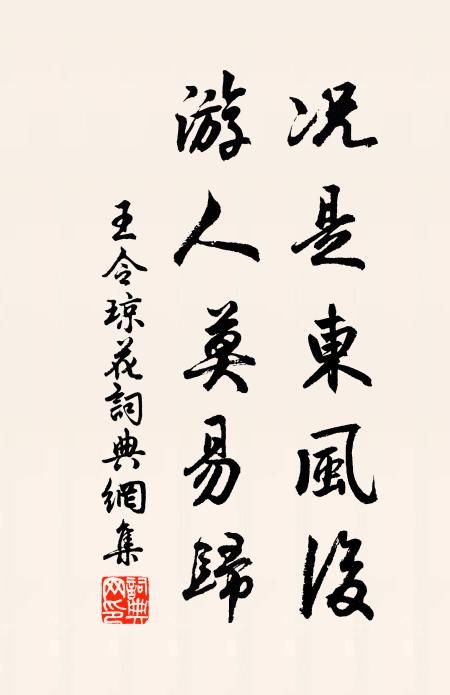 况是東風後
游人莫易歸
王令琼花詞典網集
詞典网印